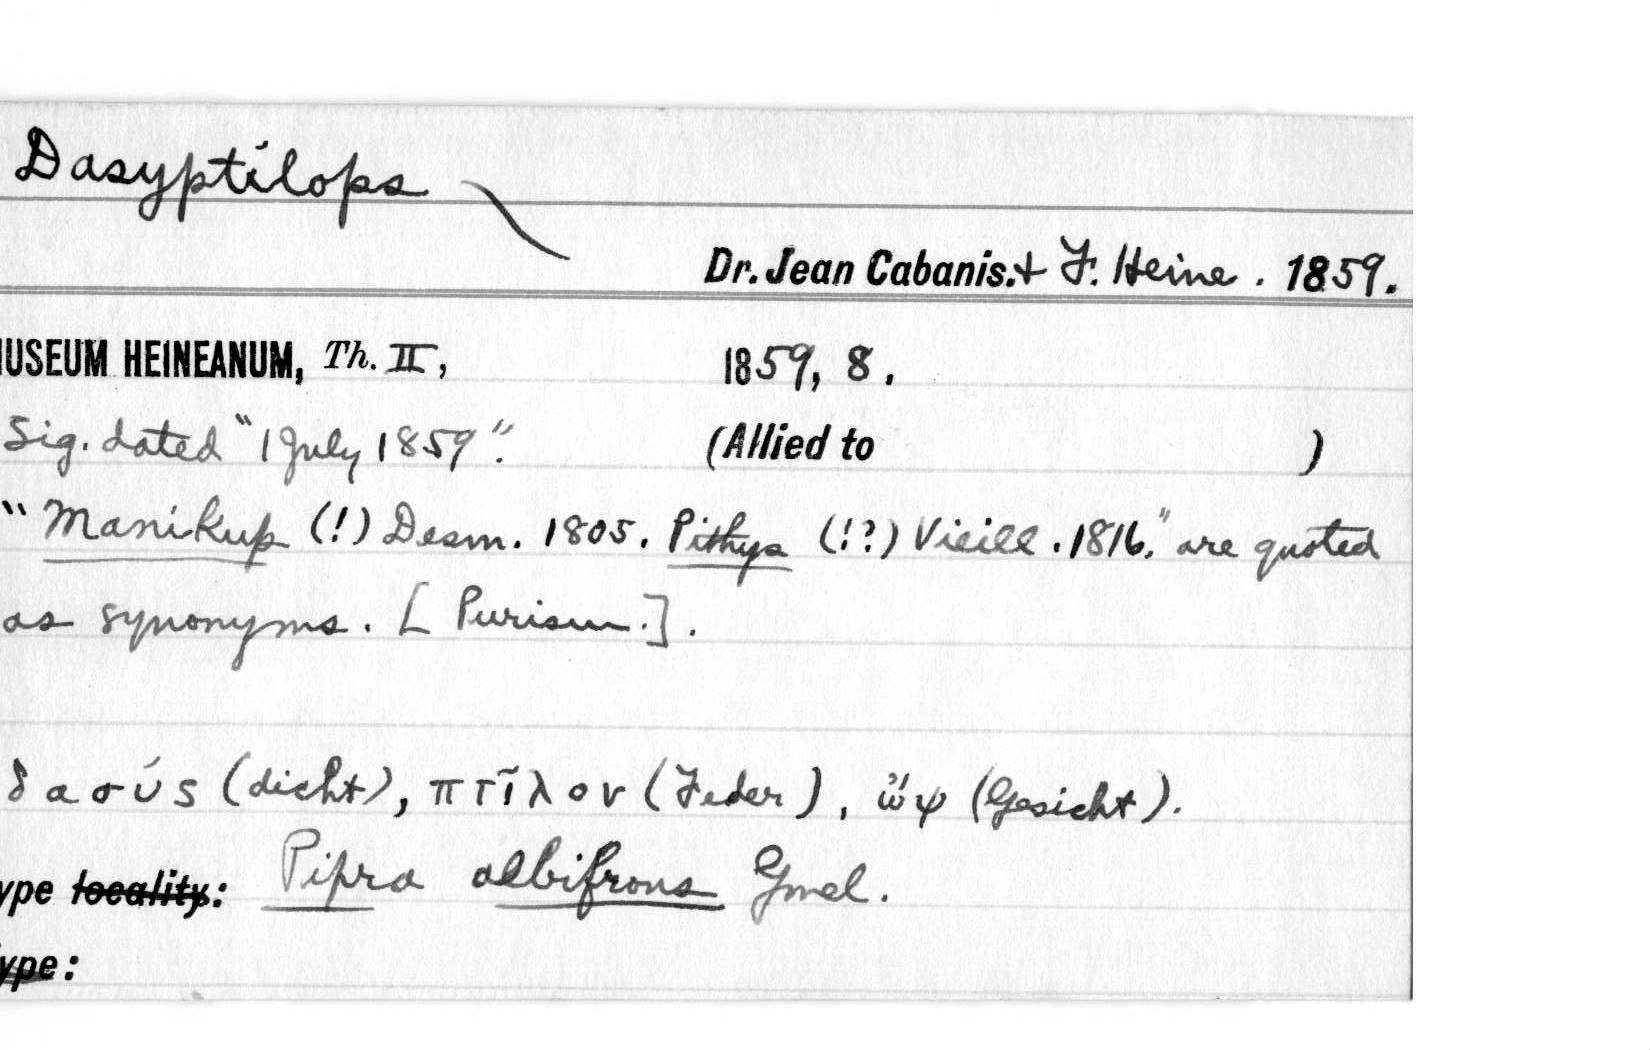 Dasyptilops
Dr. Jean Cabanis. + F. Heine. 1859.
MUSEUM HEINEANUM, Th. II, 1859, 8.
Sig. dated "1 July 1859". (Allied to )
"Manikup (!) Desm. 1805. Pithys (!?) Vieill. 1816," are quoted
as synonyms. [Purism.].
δασύς (dicht), πτῖλον (Feder), ὤψ (Gesicht).
ype locality: Pipra albifrons Gmel.
ype: